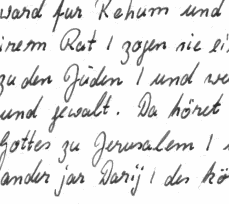 ward fur Rehum und
irem Rat / zogen sie ei
zu den Jüden / und we
und gewalt. Da höret
Gottes zu Jerusalem /
ander jar Darij / des kö